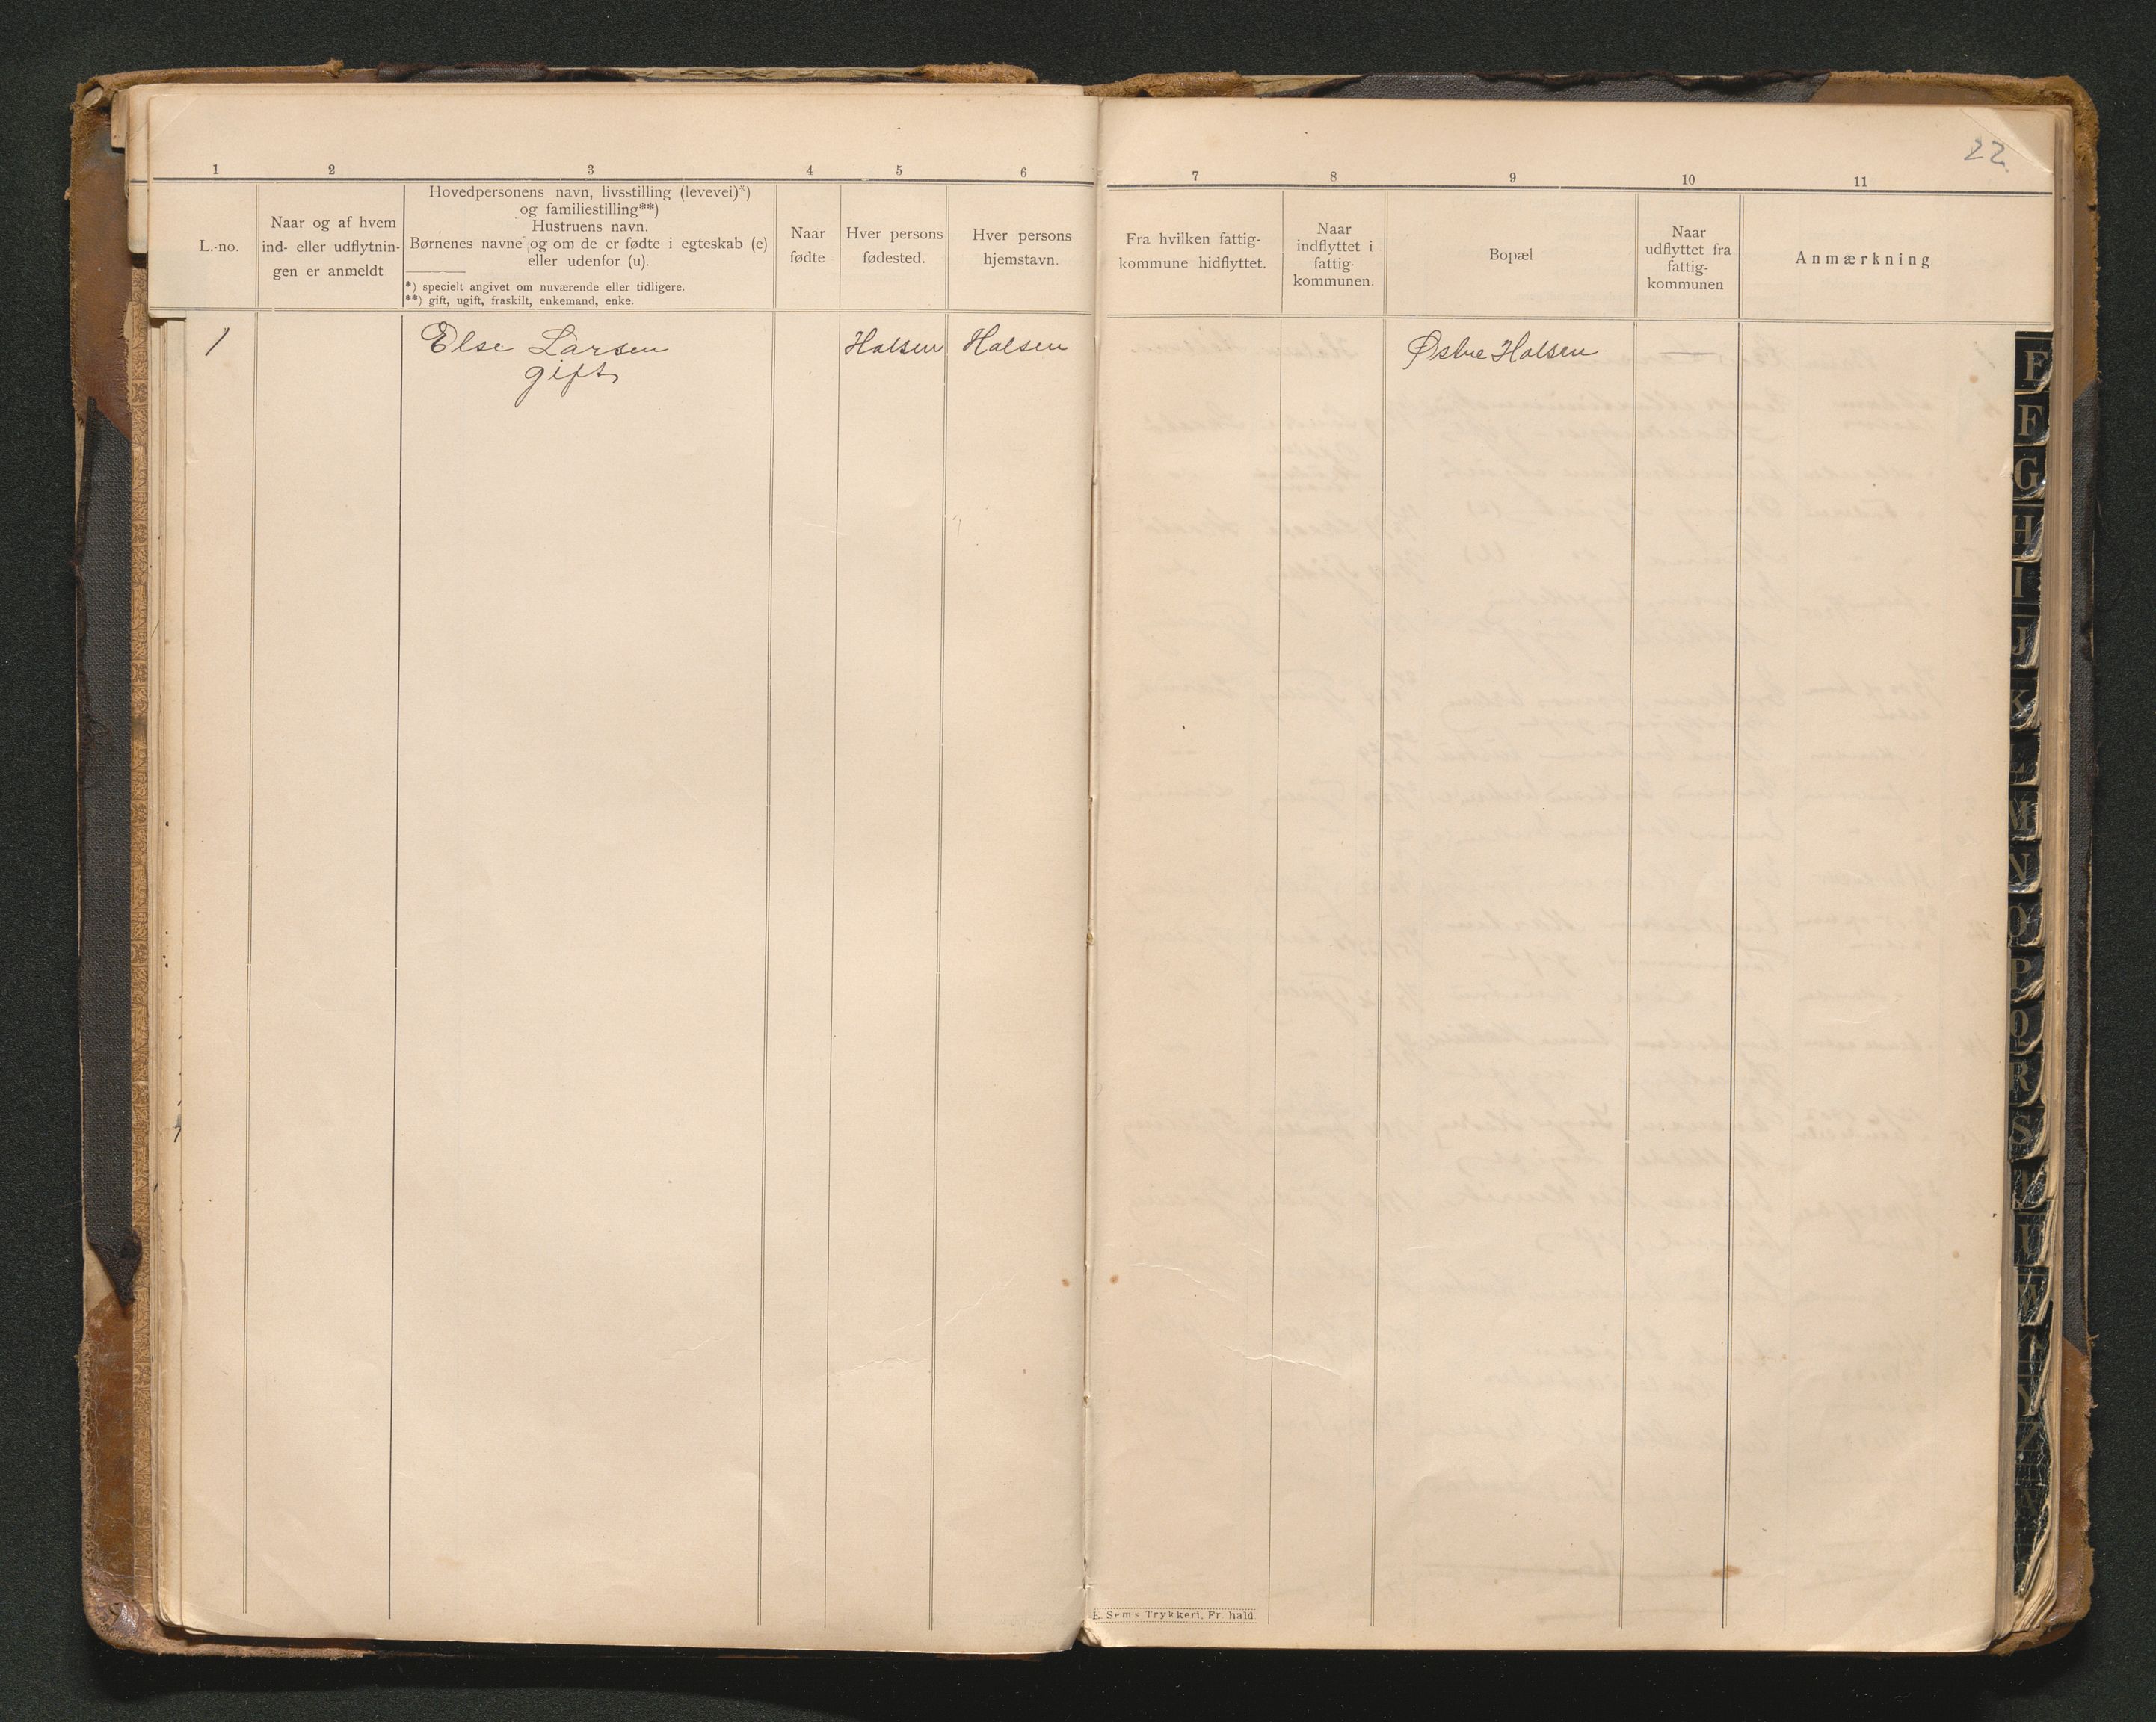 22
1 2 3 4 5 6 7 8 9 10 11
L.-no.
Naar og af hvem
ind- eller udflytnin-
gen er anmeldt
Hovedpersonens navn, livsstilling (levevei)*)
og familiestilling**)
Hustruens navn.
Børnenes navne og om de er fødte i egteskab (e)
eller udenfor (u).
*) specielt angivet om nuværende eller tidligere.
**) gift, ugift, fraskilt, enkemand, enke.
Naar
fødte
Hver persons
fødested.
Hver persons
hjemstavn.
Fra hvilken fattig-
kommune hidflyttet.
Naar
indflyttet i
fattig-
kommunen.
Bopæl
Naar
udflyttet fra
fattig-
kommunen
Anmærkning
1 Else Larsen Halsen Halsen Østre Halsen —
gift
E. Sems Trykkeri, Fr.hald.
E
F
G
H
I
J
K
L
M
N
O
P
Q
R
S
U
W
Y
Z